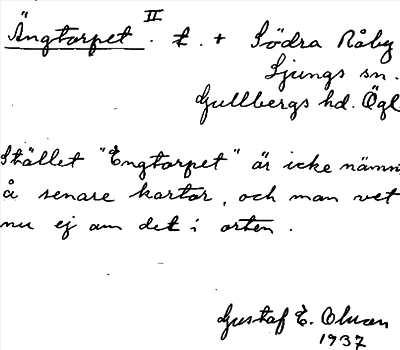 Ängtorpet II. t. + Södra Råby
Ljungs sn.
Gullbergs hd. Ögl
Stället "Engtorpet" är icke nämn
å senare kartor, och man vet
nu ej om det i orten.
Gustaf E. Olson
1937